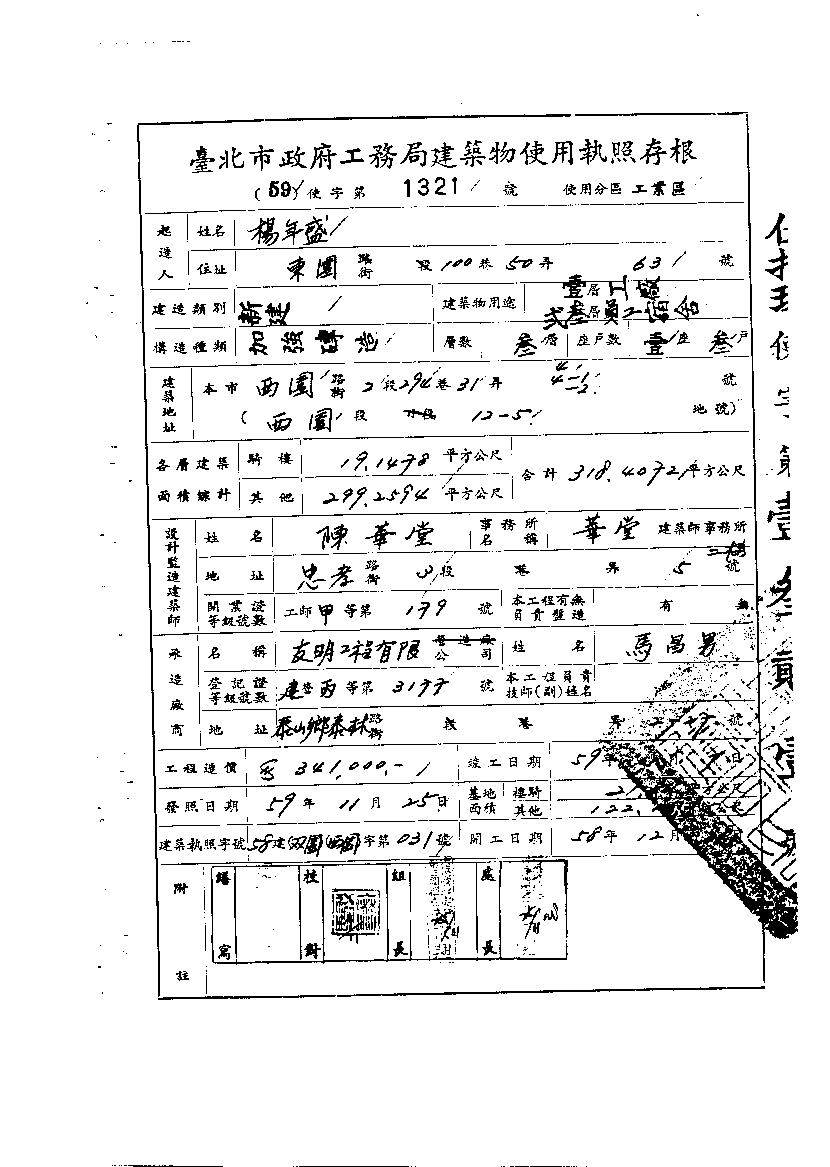 臺北市政府工務局建築物使用執照存根
(59)使字第 1321 號 使用分區 工業區
起造人 姓名 楊年盛
住址 東園 路街 段 100 巷 50 弄 63 號
建造類別 新建 建築物用途 壹層工廠 貳叁層員工宿舍
構造種類 加強磚造 層數 叁層 座戶數 壹座 叁戶
建築地址 本市 西園 路街 2 段 294 巷 31 弄 4 4-1 4-2 號
(西園 段 12-5 地號)
各層建築面積總計 騎樓 19.1478 平方公尺 合計 318.4072 平方公尺
其他 299.2594 平方公尺
設計監造建築師 姓名 陳華堂 事務所名稱 華堂 建築師事務所
地址 忠孝 路街 段 巷 弄 5 號
開業證等級號數 工師 甲 等第 179 號 本工程有無負責監造 有 無
承造廠商 名稱 友明工程有限 營造廠公司 姓名 馬昌男
登記證等級號數 建營 丙 等第 3177 號 本工程負責技師(副)姓名
地址 泰山鄉泰林 路街 段 巷 弄 號
工程造價 341,000.- 竣工日期 59年 日
發照日期 59年 11月 25日 基地面積 騎樓 公尺
其他 122. 公尺
建築執照字號 58建(双園)(西園)字第031號 開工日期 58年 12月
附註 繕寫 校對 組長 處長